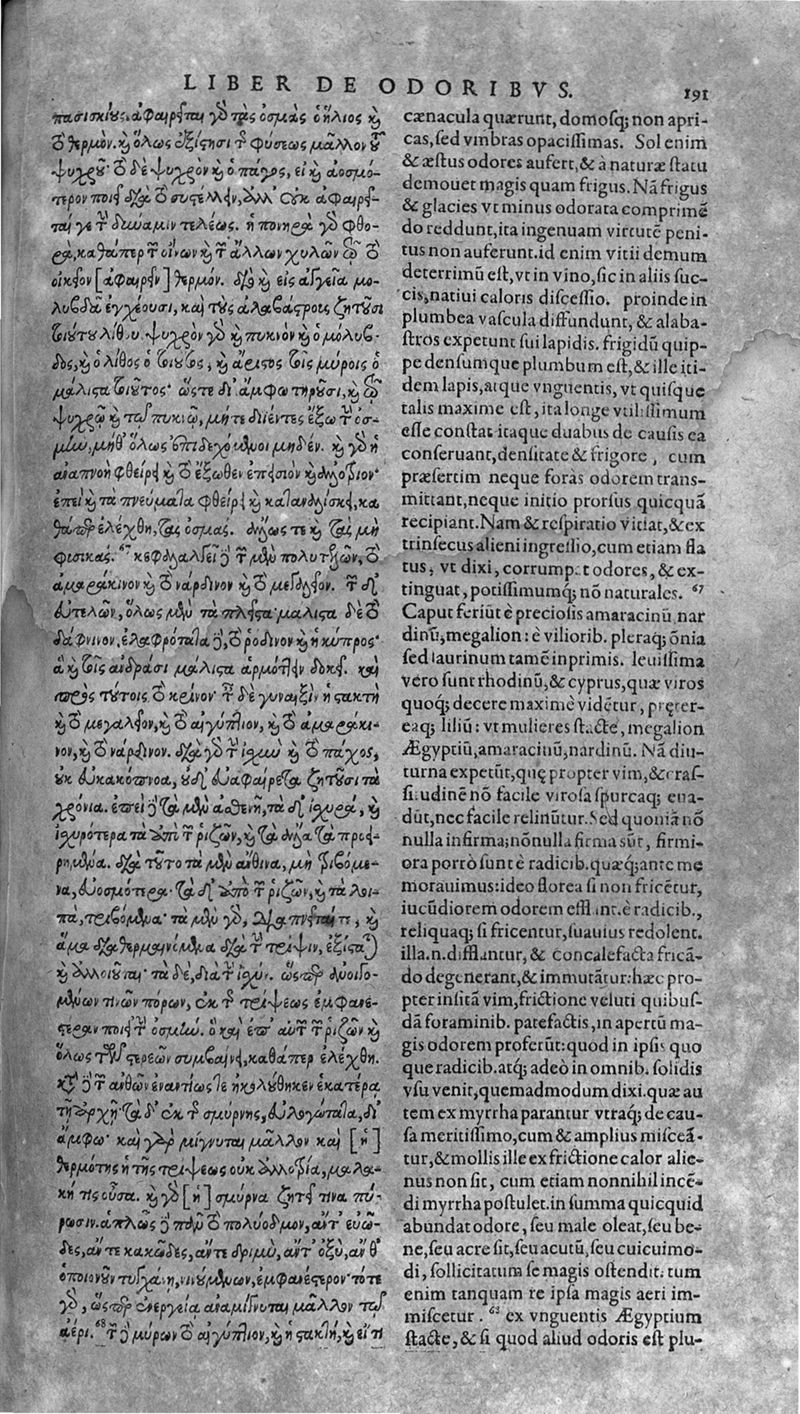 LIBER DE ODORIBVS.
191
παςισκίους. ἀφαιρεῖται γὸ τὰς ὀσμὰς ὁ ἥλιος ϗ
τὸ θερμόν. ϗ ὅλως ἐξίςησι τ͂ φύσεως μᾶλλον τοῦ
ψυχροῦ· τὸ δὲ ψυχρὸν ϗ ὁ πάγος, εἰ ϗ ἀοσμό-
τερον ποιεῖ διὰ τὸ συςέλλειν, ἀλλ' οὐκ ἀφαιρεῖ-
ται γε τ͂ δύναμιν τελέως. ἡ πονηρὰ γὸ φθο-
ρὰ, καθάπερ τ͂ οἴνων ϗ τ͂ ἄλλων χυλῶν τῷ τὸ
οἰκεῖον [ἀφαιρεῖν] θερμόν. διὸ ϗ εἰς ἀγγεῖα μο-
λυβδᾶ ἐγχέουσι, καὶ τοὺς ἀλαβάςρους ζητοῦσι
τοιούτου λίθου. ψυχρὸν γὸ ϗ πυκνὸν ϗ ὁ μόλυβ-
δος, ϗ ὁ λίθος ὁ τοιοῦτος, ϗ ἄριςος τοῖς μύροις ὁ
μάλιςα τοιοῦτος· ὥςτε δι' ἄμφω τηροῦσι, ϗ τῷ
ψυχρῷ ϗ τῷ πυκνῷ, μήτε διϊέντες ἔξω τ͂ ὀσ-
μὴν, μήθ' ὅλως ἐπιδεχόμενοι μηδέν. ϗ γὸ ἡ
ἀναπνοὴ φθείρει ϗ τὸ ἔξωθεν ἐπεισιὸν ϗ ἀλλότριον·
ἐπεὶ ϗ τὰ πνεύματα φθείρει ϗ καταναλίσκει, κα-
θάπερ ἐλέχθη, τὰς ὀσμάς. ἄλλως τε ϗ τὰς μὴ
φυσικάς. 67 κεφαλαλγεῖ δὲ τ͂ μὲν πολυτελῶν, τὸ
ἀμαράκινον ϗ τὸ νάρδινον ϗ τὸ μεγαλεῖον. τ͂ δ'
εὐτελῶν, ὅλως μὲν τὰ πλεῖςα· μάλιςα δὲ τὸ
δάφνινον. ἐλαφρότατα δὲ, τὸ ῥόδινον ϗ ἡ κύπρος·
ἃ ϗ τοῖς ἀνδράσι μάλιςα ἁρμόττειν δοκεῖ. καὶ
πρὸς τούτοις τὸ κρίνον· τ͂ δὲ γυναιξὶν ἡ ςακτὴ
ϗ τὸ μεγαλεῖον, ϗ τὸ αἰγύπτιον, ϗ τὸ ἀμαράκι-
νον, ϗ τὸ νάρδινον. διὰ γὸ τ͂ ἰσχὺν ϗ τὸ πάχος,
οὐκ εὐαφαίρετα ζητοῦσι τὰ
χρόνια. ἐπεὶ δὲ τὰ μὲν ἀσθενῆ, τὰ δ' ἰσχυρὰ, ϗ
ἰσχυρότερα τὰ ἀπὸ τ͂ ῥιζῶν, ϗ τὰ ἄλλα τὰ προει-
ρημένα. διὰ τοῦτο τὰ μὲν ἄνθινα, μὴ τριβόμε-
να, εὐοσμότερα· τὰ δ' ἀπὸ τ͂ ῥιζῶν, ϗ τὰ λοι-
πὰ, τριβόμενα· τὰ μὲν γὸ, διαπνεῖται, ϗ
ἅμα διαθερμαινόμενα διὰ τ͂ τρίψιν, ἐξίςαται
ϗ ἀλλοιοῦται· τὰ δὲ, διὰ τ͂ ἰσχύν. ὥςπερ ἀνοιγο-
μένων τινῶν πόρων, ἐκ τ͂ τρίψεως ἐμφανε-
ςέραν ποιεῖ τ͂ ὀσμήν. ὃ καὶ ἐπ' αὐτῶν τ͂ ῥιζῶν ϗ
ὅλως τῶν ςερεῶν συμβαίνει, καθάπερ ἐλέχθη.
ἐπὶ δὲ τ͂ ἀνθῶν ἐναντίως τε ἠκολούθηκεν ἑκατέρα
τῇ ἀρχῇ· τὰ δ' ἐκ τ͂ σμύρνης, εὐλογώτατα, δι'
ἄμφω· καὶ γὰρ μίγνυται μᾶλλον καὶ [ἡ]
θερμότης ἡ τῆς τρίψεως οὐκ ἀλλοτρία, μαλα-
κή τις οὖσα. ϗ γὸ [ἡ] σμύρνα ζητεῖ τινα πύ-
ρωσιν. ἁπλῶς δὲ πᾶν τὸ πολύοδμον, ἄντ' εὐῶ-
δες, ἄντε κακῶδες, ἄντε δριμὺ, ἄντ' ὀξὺ, ἄνθ'
ὁποιονοῦν τυγχάνῃ, κινούμενον, ἐμφανέςερον· τότε
γὸ, ὥςπερ ἐνεργείᾳ ἀναμίγνυται μᾶλλον τῷ
ἀέρι. 68 τ͂ δὲ μύρων τὸ αἰγύπτιον, ϗ ἡ ςακτὴ, ϗ εἴ τι
cænacula quærunt, domosq; non apri-
cas, sed vmbras opacissimas. Sol enim
& æstus odores aufert, & à naturæ statu
demouet magis quam frigus. Nã frigus
& glacies vt minus odorata comprimẽ
do reddunt, ita ingenuam virtutẽ peni-
tus non auferunt. id enim vitii demum
deterrimũ est, vt in vino, sic in aliis suc-
cis, natiui caloris discessio. proinde in
plumbea vascula diffundunt, & alaba-
stros expetunt sui lapidis. frigidũ quip-
pe densumque plumbum est, & ille iti-
dem lapis, atque vnguentis, vt quisque
talis maxime est, ita longe vtilissimum
esse constat itaque duabus de causis ea
conseruant, densitate & frigore, cum
præsertim neque foras odorem trans-
mittant, neque initio prorsus quicquã
recipiant. Nam & respiratio vitiat, & ex
trinsecus alieni ingressio, cum etiam fla
tus, vt dixi, corrumpat odores, & ex-
tinguat, potissimumq; nõ naturales. 67
Caput feriũt è preciosis amaracinũ, nar
dinũ, megalion: è vilioria. pleraq; õnia
sed laurinum tamẽ inprimis. leuissima
vero sunt rhodinũ, & cyprus, quæ viros
quoq; decere maximè vidẽtur, pręter-
eaq; liliũ: vt mulieres stacte, megalion
Ægyptiũ, amaracinũ, nardinũ. Nã diu-
turna expetũt, quę propter vim, & cras-
situdinẽ nõ facile virosa spurcaq; eua-
dũt, nec facile relinũtur. Sed quoniã nõ
nulla infirma; nõnulla firma sũt, firmi-
ora porrò sunt è radicib. quæq; ante me
morauimus: ideo florea si non fricẽtur,
iucũdiorem odorem efflant. è radicib.,
reliquaq; si fricentur, suauius redolent.
illa. n. difflantur, & concalefacta fricã-
do degenerant, & immutãtur: hæc pro-
pter insitã vim, frictione veluti quibus-
dã foraminib. patefactis, in apertũ ma-
gis odorem proferũt: quod in ipsis quo
que radicib. atq; adeò in omnib. solidis
vsu venit, quemadmodum dixi. quæ au
tem ex myrrha parantur vtraq; de cau-
sa meritissimo, cum & amplius misceã-
tur, & mollis ille ex frictione calor alie-
nus non sit, cum etiam nonnihil incẽ-
di myrrha postulet. in summa quicquid
abundat odore, seu male oleat, seu be-
ne, seu acre sit, seu acutũ, seu cuicuimo-
di, sollicitatum se magis ostendit. tum
enim tanquam re ipsa magis aeri im-
miscetur. 68 ex vnguentis Ægyptium
stacte, & si quod aliud odoris est plu-